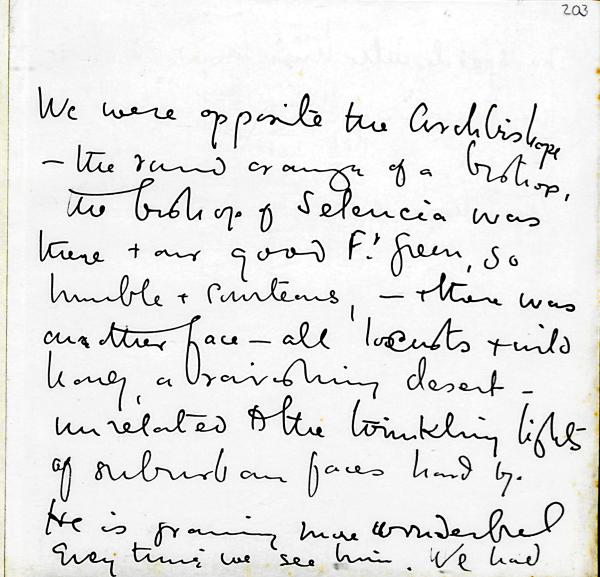 203
We were opposite the Archbishops
– the round orange of a bishop,
the bishop of Seleucia was
there + our good Fr Green, so
humble + courteous, – + there was
another face – all locusts + wild
honey, a ravishing desert –
unrelated to the twinkling lights
of suburban faces hard by.
He is growing more wonderful
Every time we see him. We had